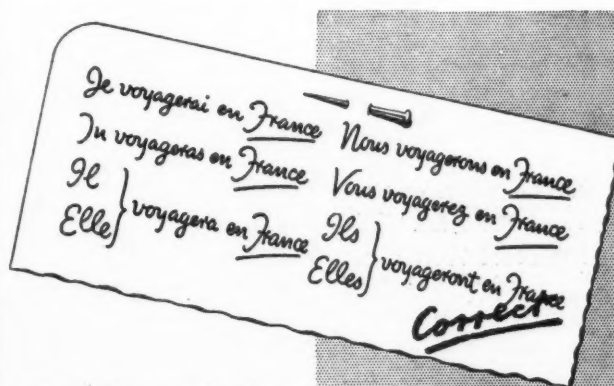 Je voyagerai en France
Tu voyageras en France
Il
Elle
voyagera en France
Nous voyagerons en France
Vous voyagerez en France
Ils
Elles
voyageront en France
Correct